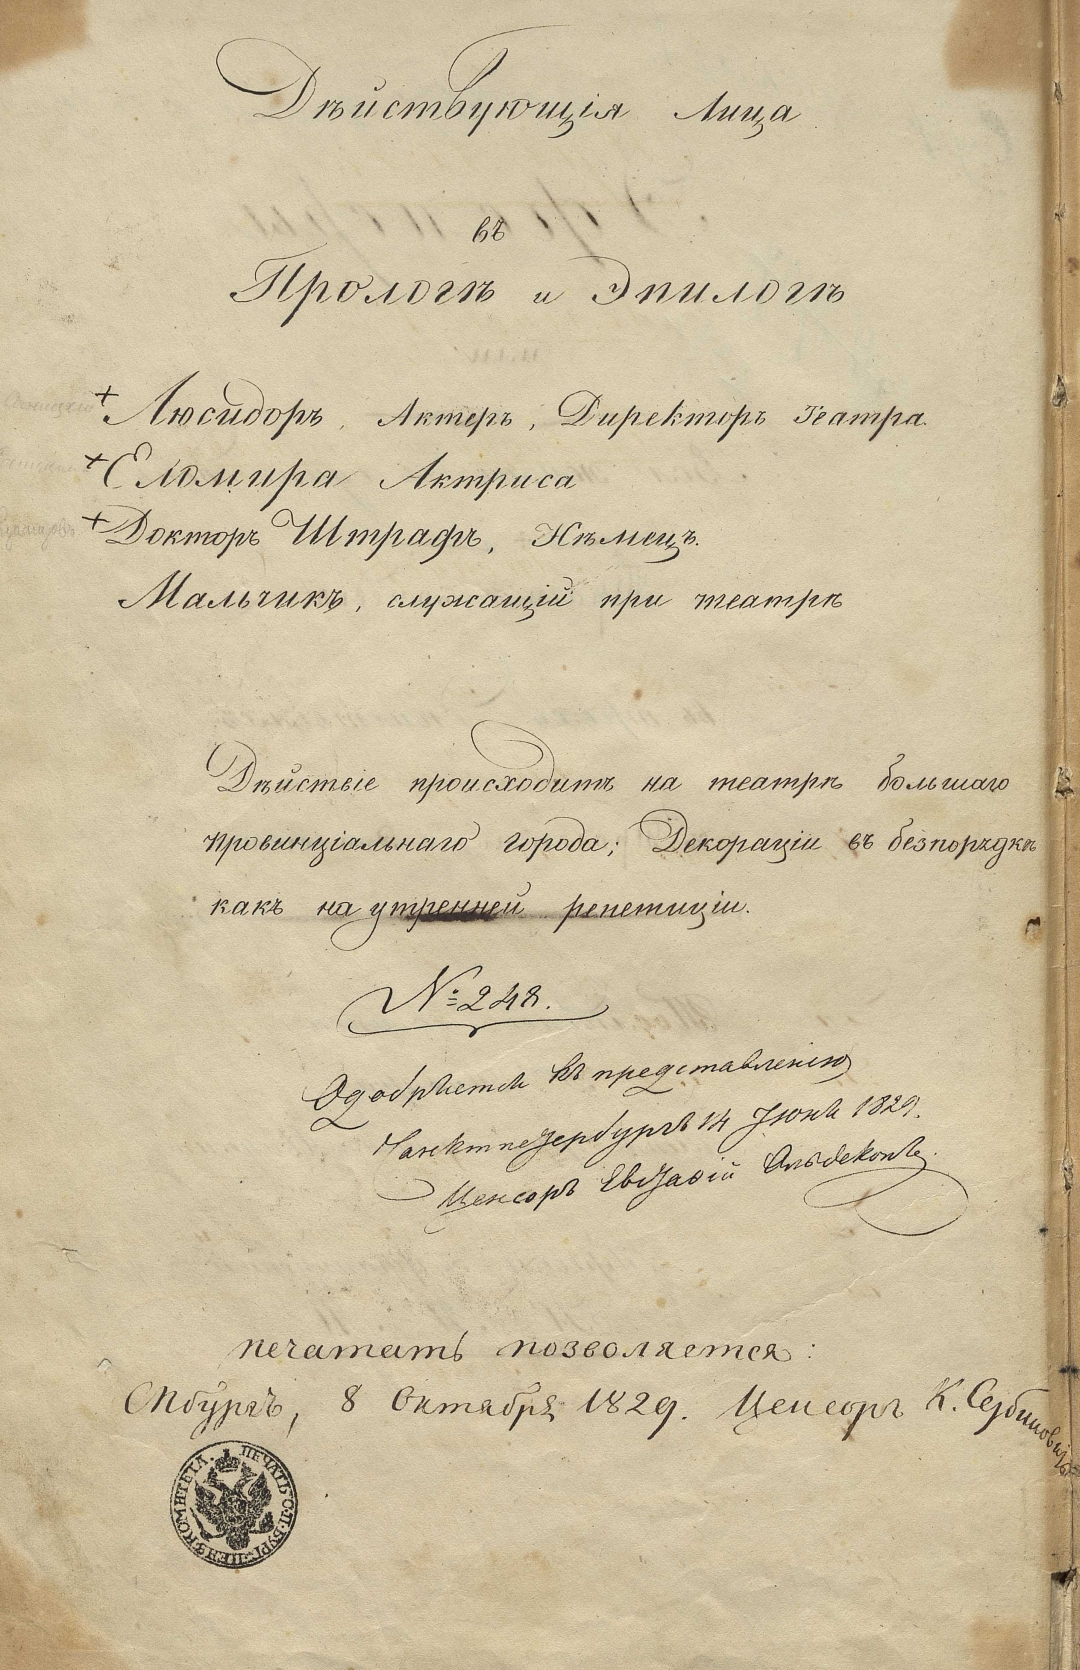 Дѣйствующія Лица
въ
Прологѣ и Эпилогѣ
+ Люсидоръ, Актеръ, Директоръ Театра.
+ Еломира Актриса
+ Докторъ Штрафъ, Нѣмецъ.
Мальчикъ, служащій при театрѣ
Дѣйствіе происходитъ на театрѣ большаго
провинціальнаго города; Декораціи въ безпорядкѣ
какъ на утренней репетиціи.
№ 248.
Одобряется къ представленію
Санктпетербургъ 14 Іюня 1829.
Ценсоръ Евстафій Ольдекопъ.
печатать позволяется:
СПбургъ, 8 Октября 1829. Ценсоръ К. Сербиновичъ
ПЕЧАТЬ С. П. БУРГ. ЦЕНЗ. КОМИТЕТА